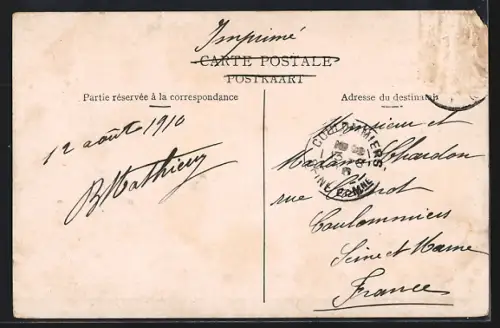 Imprimé
CARTE POSTALE
POSTKAART
Partie réservée à la correspondance
Adresse du destinatai
12 août 1910
B Mathieu
COULOMMIERS
SEINE ET MARNE
Monsieur et
Madame Chardon
rue
Coulommiers
Seine et Marne
France